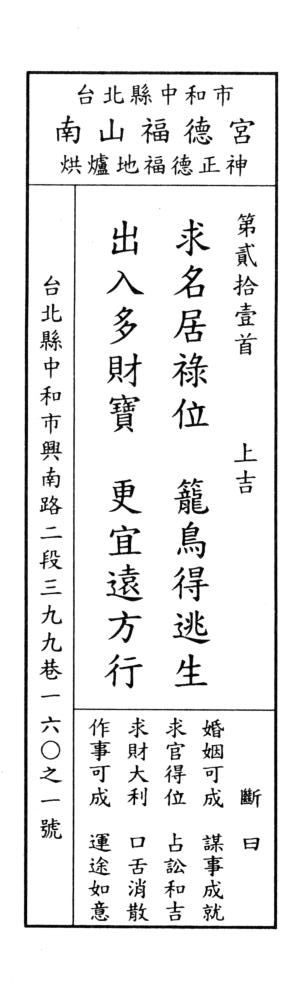 台北縣中和市
南山福德宮
烘爐地福德正神
第貳拾壹首　上吉
求名居祿位　籠鳥得逃生
出入多財寶　更宜遠方行
斷曰
婚姻可成　謀事成就
求官得位　占訟和吉
求財大利　口舌消散
作事可成　運途如意
台北縣中和市興南路二段三九九巷一六〇之一號